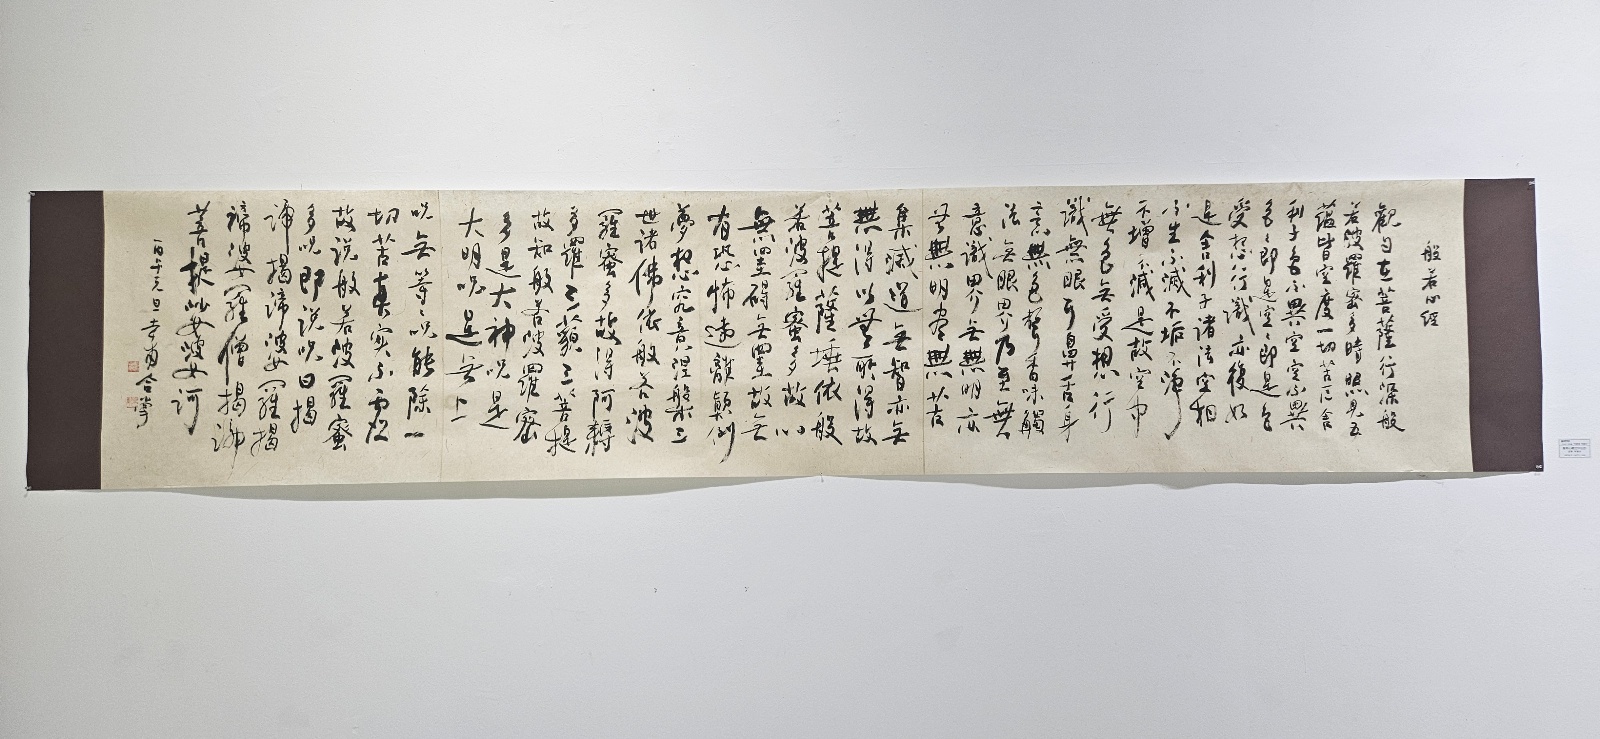 般若心經
觀自在菩薩行深般
若波羅蜜多時照見五
蘊皆空度一切苦厄舍
利子色不異空空不異
色色即是空空即是色
受想行識亦復如
是舍利子諸法空相
不生不滅不垢不淨
不增不減是故空中
無色無受想行
識無眼耳鼻舌身
意無色聲香味觸
法無眼界乃至無
意識界無無明亦
無無明盡無苦
集滅道無智亦無
無得以無所得故
菩提薩埵依般
若波羅蜜多故心
無罣礙無罣故無
有恐怖遠離顛倒
夢想究竟涅槃三
世諸佛依般若波
羅蜜多故得阿耨
多羅三藐三菩提
故知般若波羅蜜
多是大神呪是
大明呪是無上
呪無等等呪能除一
切苦真實不虛
故說般若波羅蜜
多呪即說呪曰揭
諦揭諦波羅揭
諦波羅僧揭諦
菩提娑婆訶
元旦
合掌